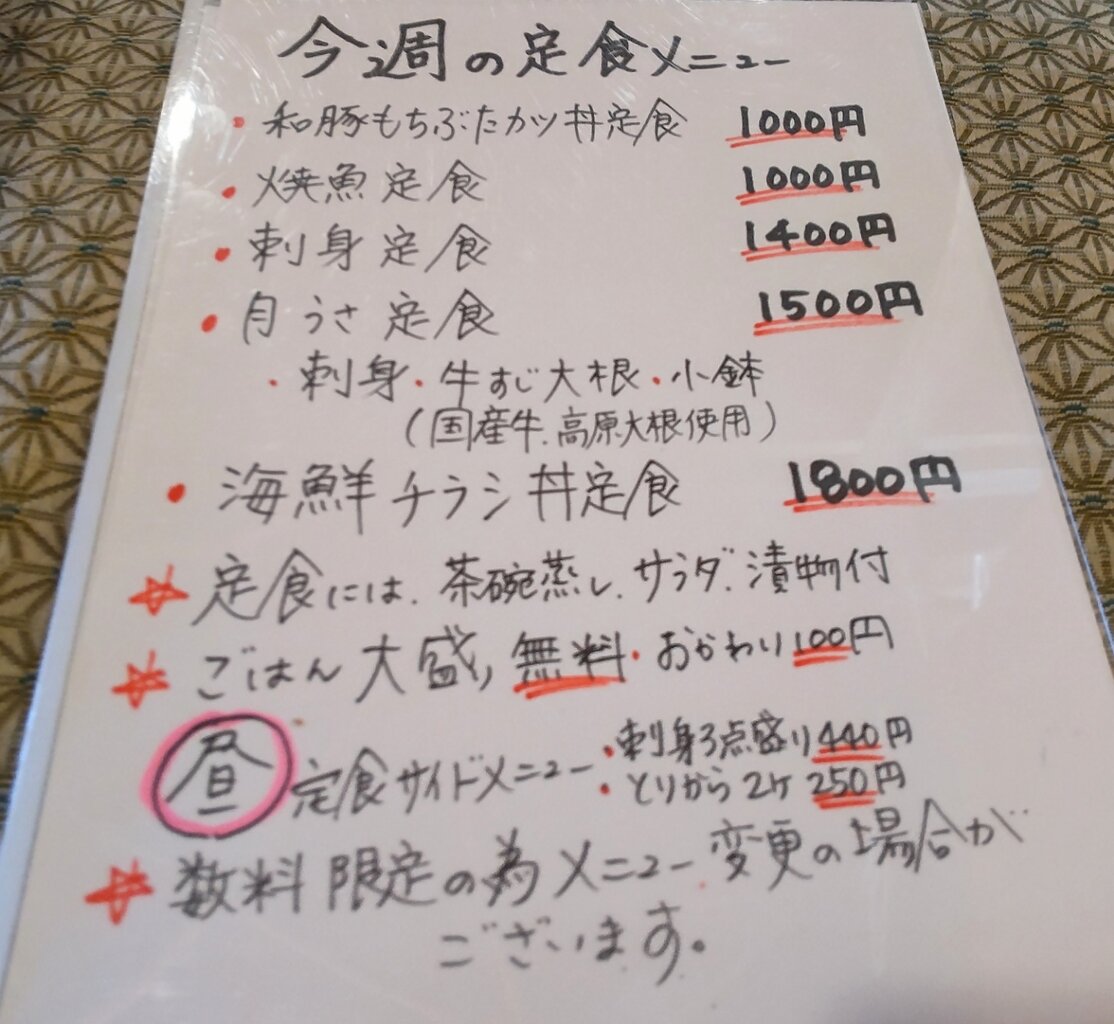 今週の定食メニュー
・和豚もちぶたカツ丼定食 1000円
・焼魚定食 1000円
・刺身定食 1400円
・月うさ定食 1500円
・刺身・牛すじ大根・小鉢
(国産牛、高原大根使用)
・海鮮チラシ丼定食 1800円
☆定食には、茶碗蒸し、サラダ、漬物付
☆ごはん大盛り無料・おかわり100円
昼 定食サイドメニュー ・刺身3点盛り440円
・とりから2ケ 250円
☆数料限定の為メニュー変更の場合が
ございます。